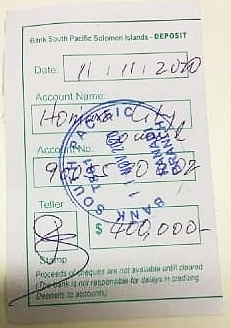 Bank South Pacific Solomon Islands - DEPOSIT
Date: 11.11.2020
Account Name:
Honiara City
Council
Account No:
Teller
$ 400,000-
Stamp
Proceeds of cheques are not available until cleared
(The bank is not responsible for delays in crediting
Deposits to accounts)
BANK SOUTH PACIFIC